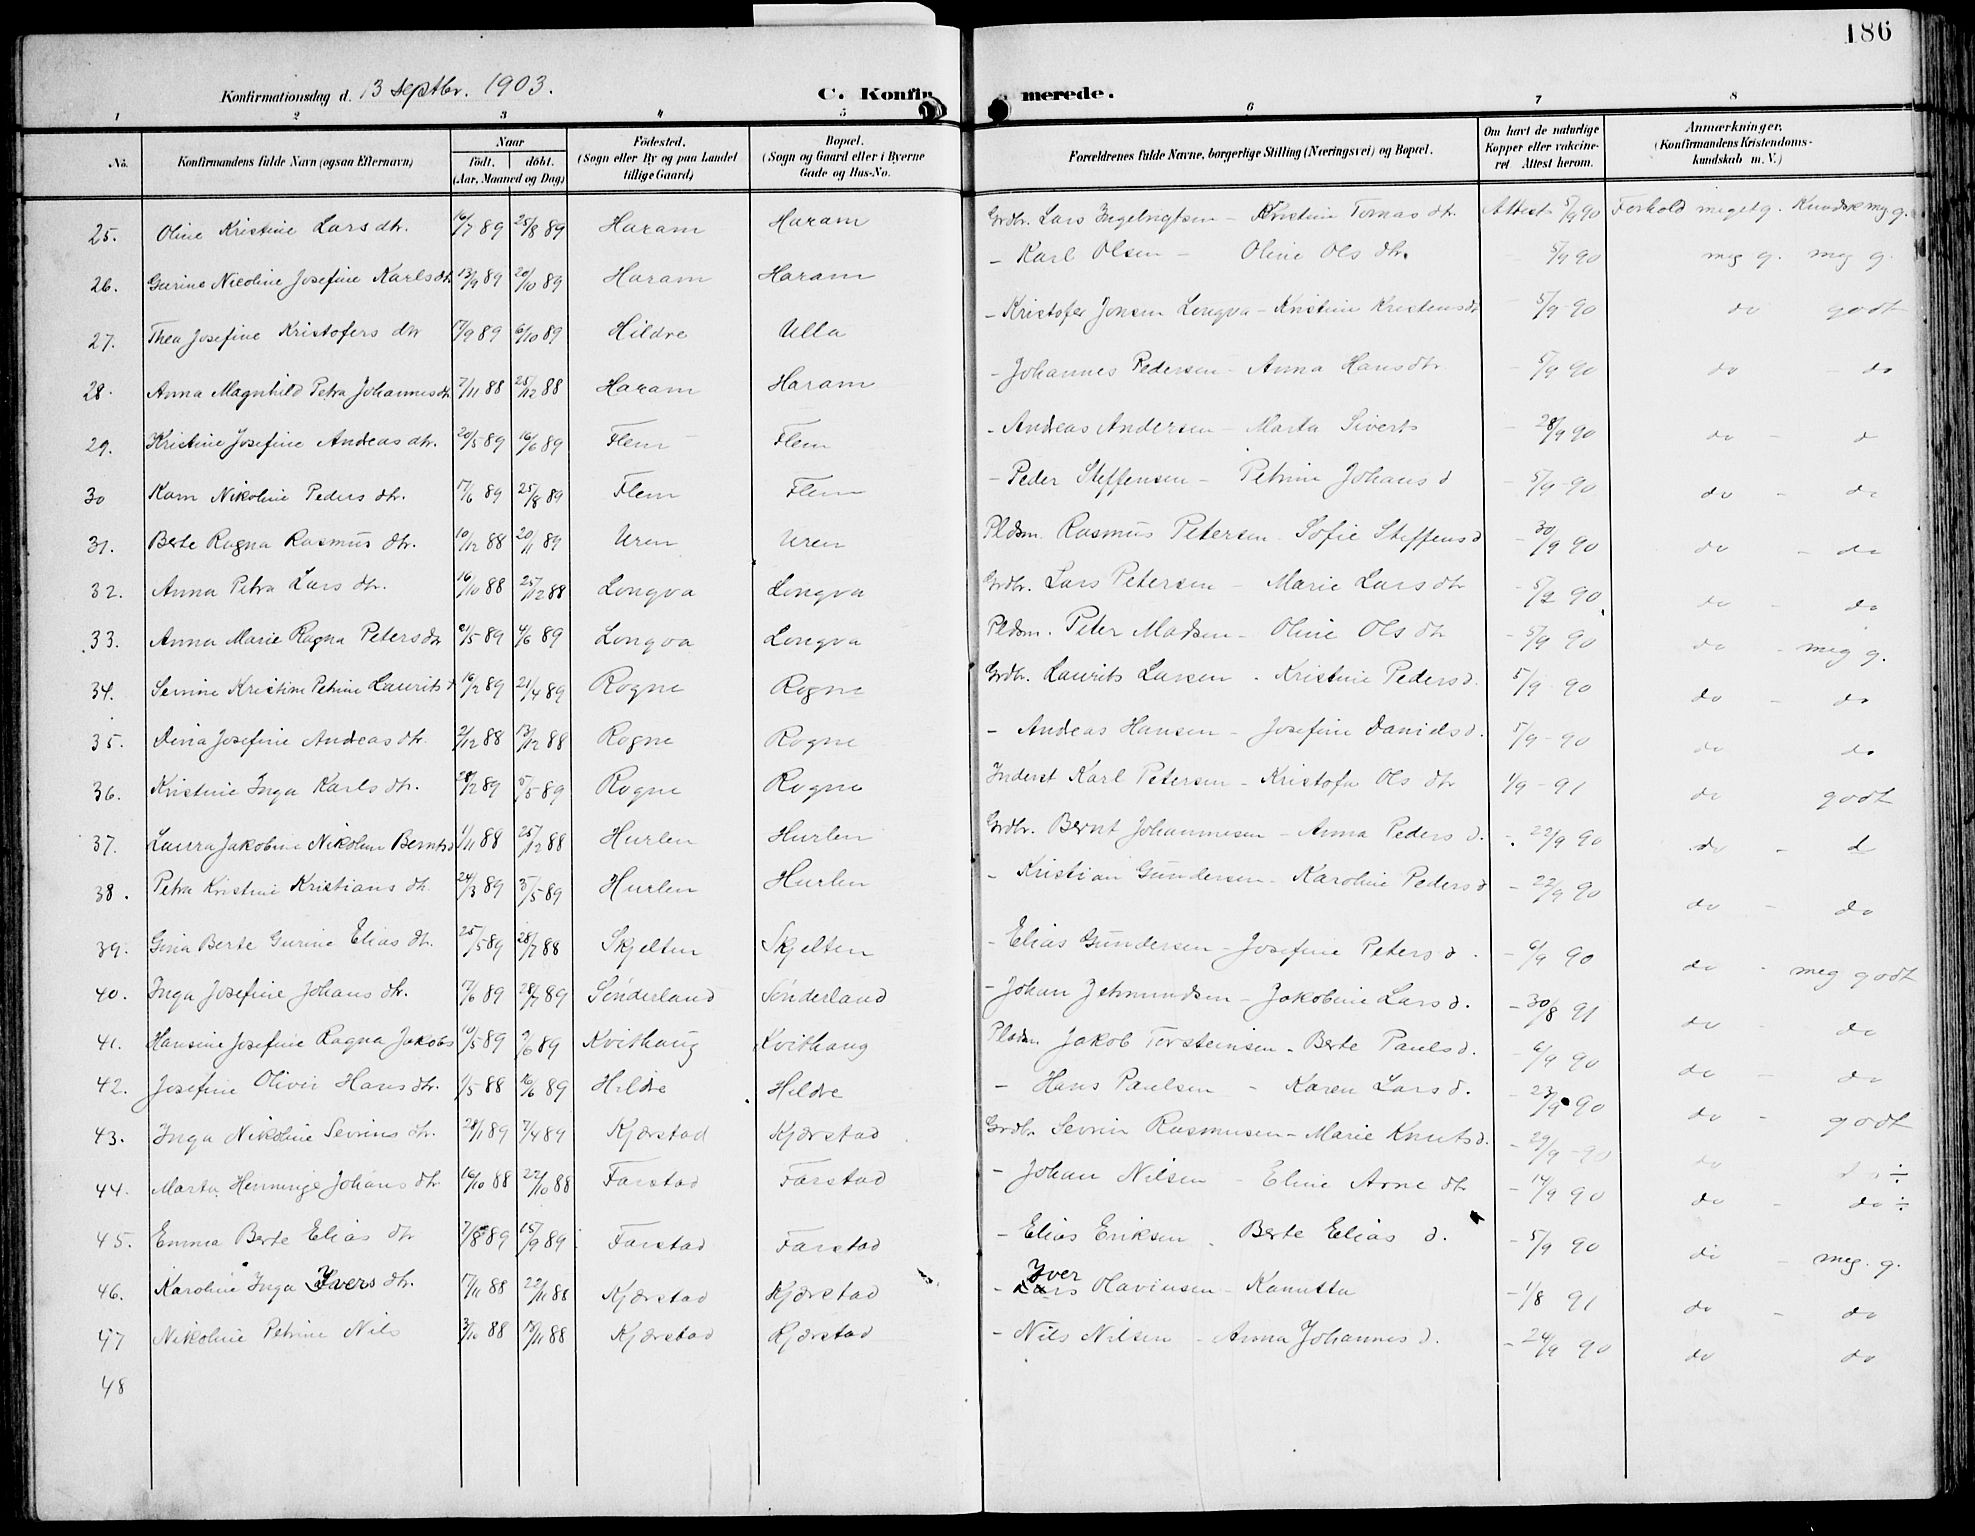 186
Konfirmationsdag d. 13 Septbr. 1903.
C. Konfirmerede.
1 2 3 4 5 6 7 8
No. Konfirmandens fulde Navn (ogsaa Efternavn) Naar født, døbt. (Aar, Maaned og Dag) Födested. (Sogn eller By og paa Landet tillige Gaard) Bopæl. (Sogn og Gaard eller i Byerne Gade og Hus-No. Forældrenes fulde Navne, borgerlige Stilling (Næringsvei) og Bopæl. Om havt de naturlige Kopper eller vakcineret Attest herom. Anmærkninger. (Konfirmandens Kristendomskundskab m. V.)
25. Oline Kristine Lars dtr. 16/7 89 25/8 89 Haram Haram Grdbr. Lars Ingebrigtsen - Kristine Tomas dtr. Attest 5/9 90 Forhold meget g. Kundsk meg g.
26. Gurine Nicoline Josefine Karls dtr 13/9 89 20/10 89 Haram Haram - Karl Olsen - Oline Ols dtr. 5/9 90 meg g. meg g.
27. Thea Josefine Kristofers dtr 17/9 89 6/10 89 Hildre Ulla - Kristofer Jonsen Longva - Kristine Kristensd 5/9 - 90 do godt
28. Anna Magnhild Petra Johannesdtr 7/11 88 25/12 88 Haram Haram - Johannes Pedersen - Anna Hansdtr - 5/9 90 do - do
29. Kristine Josefine Andeas dtr. 20/5 89 16/6 89 Flem Flem - Andeas Andersen - Marta Siverts - 28/9 90 do - d
30 Karn Nikoline Peders dtr. 17/6 89 25/8 89 Flem Flem - Peder Steffensen - Petrine Johans d - 5/9 - 90 do - do
31. Berte Ragna Rasmus dtr. 10/12 88 20/1 89 Uren Uren Pldsm. Rasmus Petersen - Sofie Steffens d - 30/9 90 do - do
32. Anna Petra Lars dtr. 16/10 88 25/12 88 Longva Longva Grdbr. Lars Petersen - Marie Lars dtr - 5/2 90 do - do
33. Anna Marie Ragna Peters dtr 21/5 89 4/6 89 Longva Longva Pldsm. Peter Madsen - Oline Ols dtr - 5/9 90 do - meg g.
34. Sevrine Kristine Petrine Laurits d 16/2 89 21/4 89 Rogne Rogne Grdbr. Laurits Larsen - Kristine Peders d. 5/9 - 90 do - do
35. Dina Josefine Andeas dtr. 2/12 88 13/12 88 Rogne Rogne - Andeas Hansen - Josefine Daniels d. 5/9 - 90 do do
36. Kristine Inga Karls dtr. 28/2 89 5/5 89 Rogne Rogne Inderst Karl Petersen - Kristofa Ols dtr 1/9 - 91 do godt
37. Laura Jakobine Nikoline Bernts d 1/11 88 25/12 88 Hurlen Hurlen Grdbr. Bernt Johannesen - Anna Peders d. - 22/9 90 do - d
38. Petra Kristine Kristians dtr. 24/3 89 5/5 89 Hurlen Hurlen - Kristian Gundersen - Karoline Peders d - 22/9 90 do - do
39. Gina Berte Gurine Elias dtr. 25/5 89 28/7 88 Skjelten Skjelten - Elias Gundersen - Josefine Peters d. - 6/9 90 do - meg godt
40. Inga Josefine Johans dtr. 7/6 89 28/7 89 Sønderland Sønderland - Johan Jetmundsen - Jakobine Lars d. - 30/8 91 do - do
41. Hansine Josefine Ragna Jakobs 10/5 89 9/6 89 Kvithaug Kvithaug Pladsm Jakob Torsteinsen - Berte Pauls d. - 6/9 90 do - do
42. Josefine Olivie Hans dtr. 1/5 88 16/6 89 Hildre Hildre - Hans Paulsen - Karen Lars d. - 23/9 90 do - godt
43. Inga Nikoline Sevrins dtr. 28/1 89 7/4 89 Kjærstad Kjærstad Grdbr. Sevrin Rasmusen - Marie Knuts d. - 29/9 - 90 do do ÷
44. Marta Henninge Johans dtr 16/10 88 22/10 88 Farstad Farstad - Johan Nilsen - Eline Arne dtr - 14/9 90 do - do ÷
45. Emma Berte Elias dtr 7/8 89 15/9 89 Farstad Farstad - Elias Eriksen - Berte Elias d. - 5/9 90 do - meg. g.
46. Karoline Inga Ivers dtr. 17/11 88 22/11 88 Kjærstad Kjærstad - Iver Olavinsen - Kanutta - 1/8 91 do - do
47 Nikoline Petrine Nils 3/10 88 18/11 88 Kjærstad Kjærstad - Nils Nilsen - Anna Johannes d. - 24/9 90 do do
48